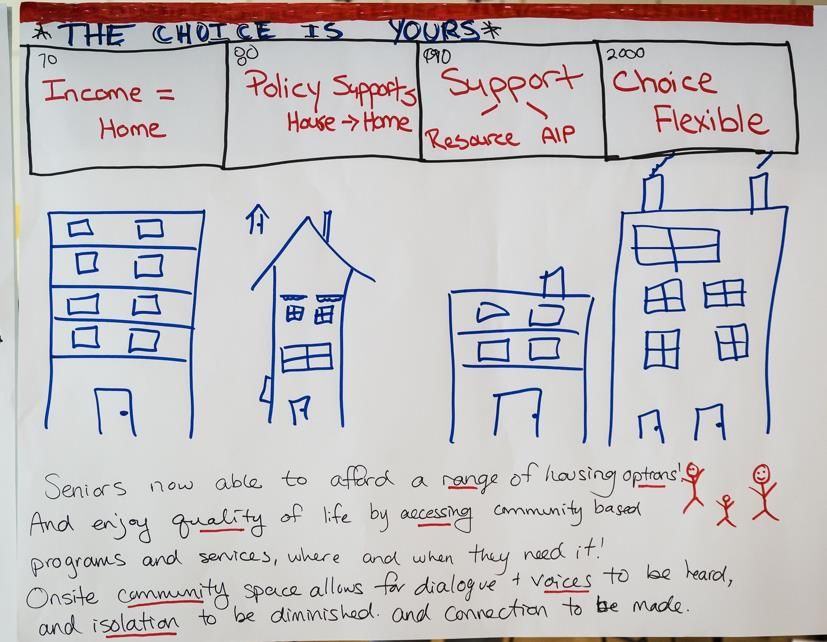 *THE CHOICE IS YOURS*
70
Income =
Home
80
Policy Supports
House → Home
90
Support
Resource AIP
2000
Choice
Flexible
Seniors now able to afford a range of housing options!
And enjoy quality of life by accessing community based
programs and services, where and when they need it!
Onsite community space allows for dialogue + voices to be heard,
and isolation to be diminished. and connection to be made.